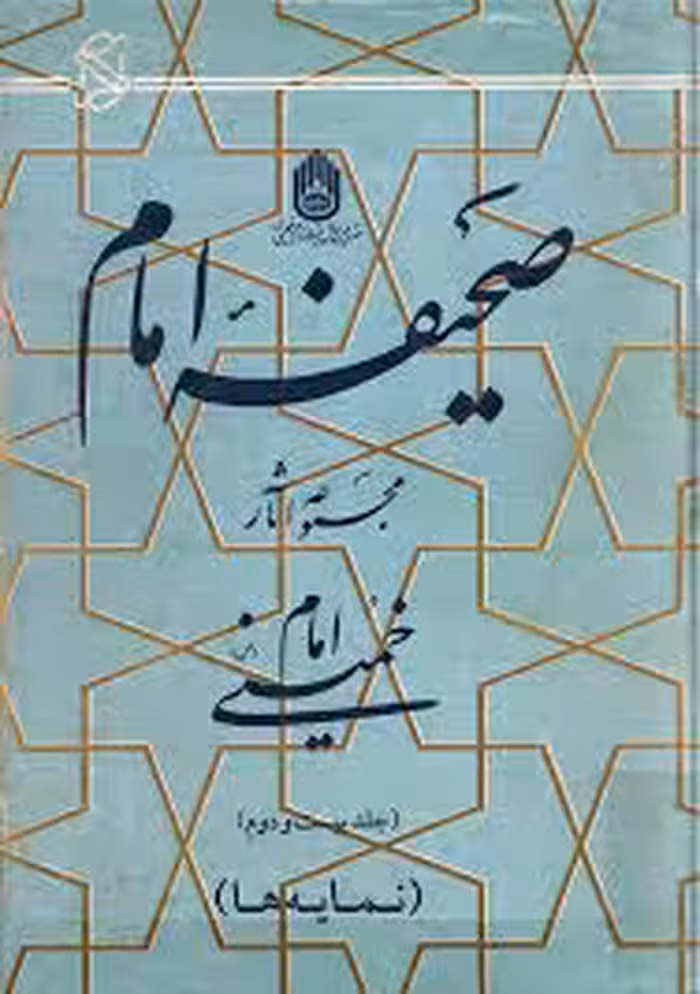 صحیفه امام
مجموعه آثار
امام خمینی
(جلد بیست و دوم)
(نمایه‌ها)